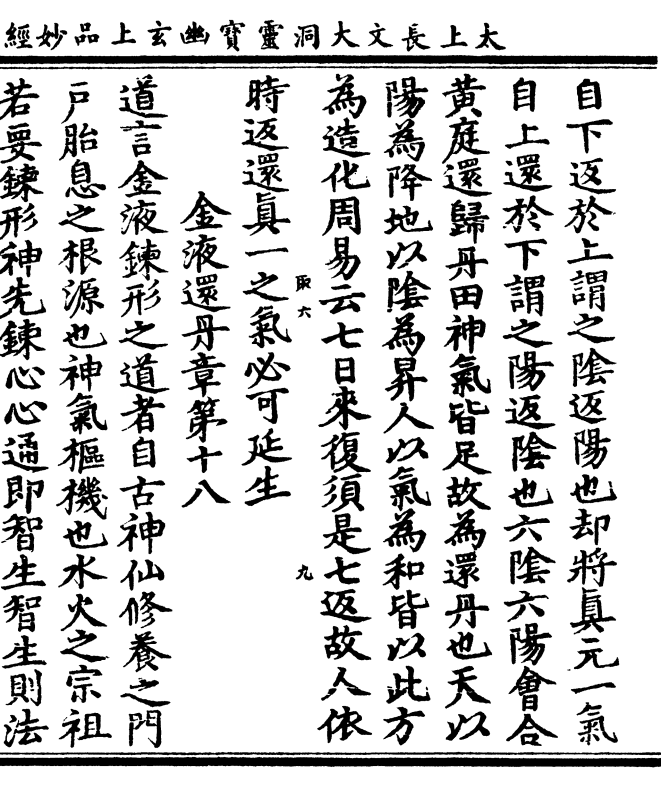 太上長文大洞靈寶幽玄上品妙經
自下返於上謂之陰返陽也却將眞元一氣
自上還於下謂之陽返陰也六陰六陽會合
黃庭還歸丹田神氣皆足故為還丹也天以
陽為降地以陰為昇人以氣為和皆以此方
為造化周易云七日來復須是七返故人依
取六
九
時返還眞一之氣必可延生
金液還丹章第十八
道言金液鍊形之道者自古神仙修養之門
戶胎息之根源也神氣樞機也水火之宗祖
若要鍊形神先鍊心心通即智生智生則法